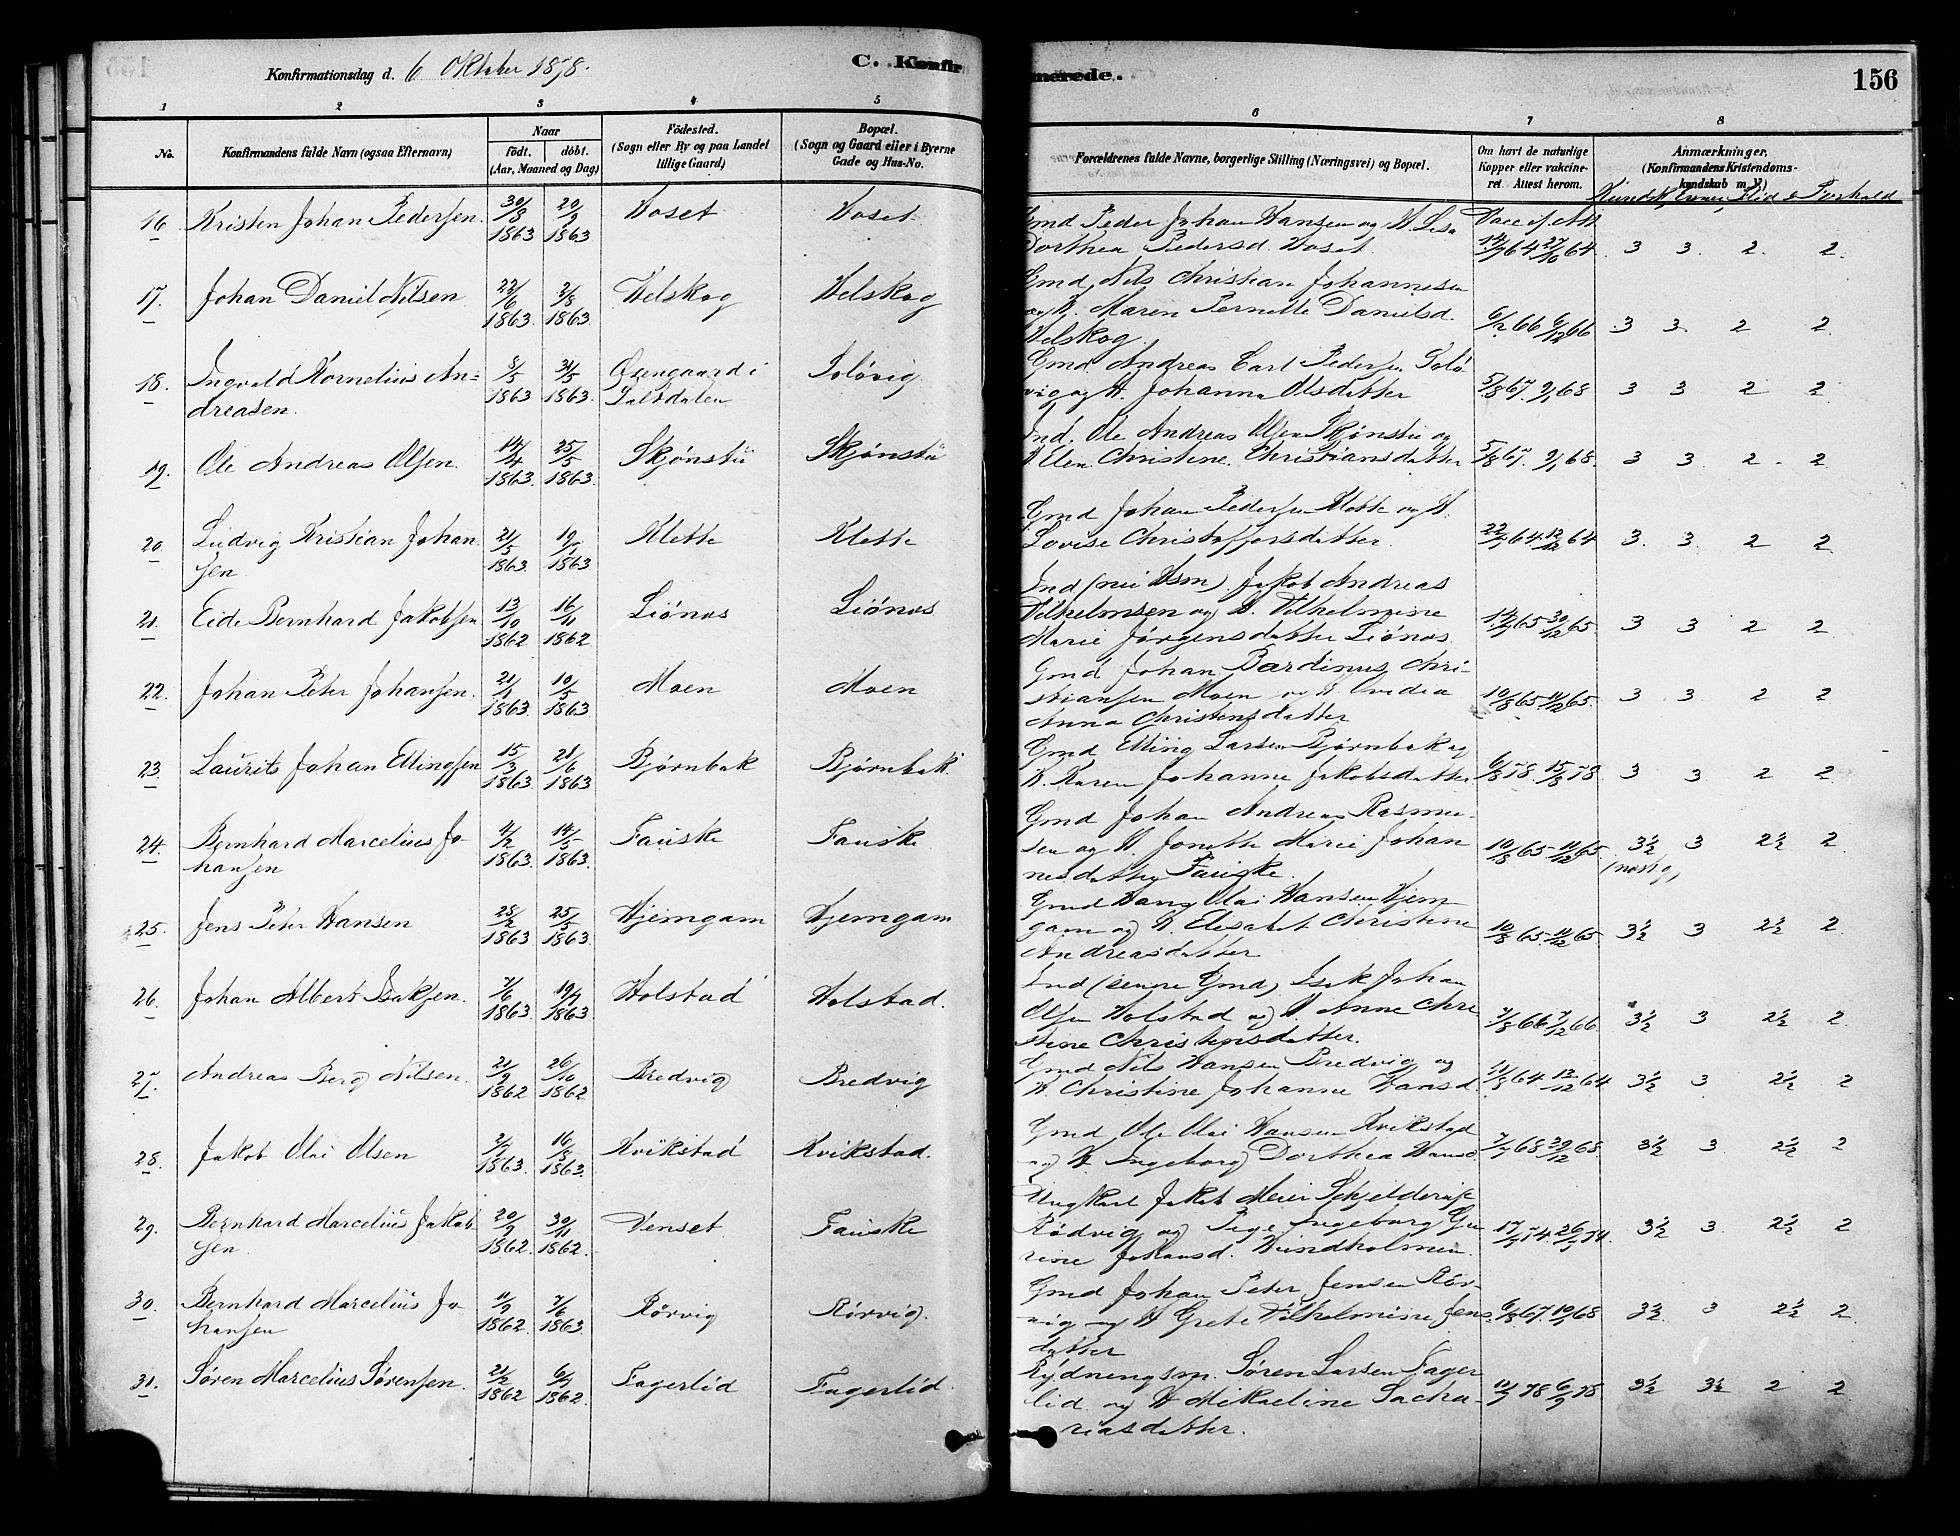 Konfirmationsdag d. 6 Oktober 1878.
C. Konfirmerede.
156
1 2 3 4 5 6 7 8
No.
Konfirmandens fulde Navn (ogsaa Efternavn)
Naar
födt. döbt.
(Aar, Maaned og Dag)
Födested.
(Sogn eller By og paa Landet
tillige Gaard)
Bopæl.
(Sogn og Gaard eller i Byerne
Gade og Hus-No.
Forældrenes fulde Navne, borgerlige Stilling (Næringsvei) og Bopæl.
Om havt de naturlige
Kopper eller vakcine-
ret. Attest herom.
Anmærkninger,
(Konfirmandens Kristendoms-
kundskab m. V.)
Kundsk, Evner, Flid & Forhold
16 Kristen Johan Pedersen. 30/8 1863 20/9 1863 Hoset Hoset
Gmd Peder Johan Hansen og H. Lisa
Dorthea Pedersd. Hoset. 3 3. 2. 2.
17. Johan Daniel Nilsen 22/6 1863. 2/8 1863. Velskog Velskog
Gmd Nils Christian Johannesen
og H. Maren Pernelle Danielsd.
Velskog. 6/12 66 6/12 66 3 3. 2 2.
18. Ingvald Kornelius An-
dreasen. 8/5 1863 31/5 1863. Øsengaard i
Saltdalen Soløvig
Gmd Andreas Carl Pedersen Solø
vig og H. Johanna Olsdatter 5/8 67. 9/1 68 3 3 2 2
19. Ole Andreas Olsen. 14/4 1863. 25/5 1863. Skjønstu Skjønstu
Ind. Ole Andreas Olsen Skjønstu og
H Elen Christine Christiansdatter 5/8 67. 9/1 68. 3 3. 2. 2
20 Ludvig Kristian Johan
sen 21/5 1863. 19/7 1863 Klette Klette
Gmd Johan Pedersen Klette og H.
Lovise Christoffersdatter. 22/7 64 12/12 64 3. 3. 2 2
21. Eide Bernhard Jakobsen 13/10 1862 16/11 1862 Liønes Liønes
Ind (nu Hsm). Jakob Andreas
Vilhelmsen og H. Vilhelmine
Marie Jørgensdatter Liønes 14/7 65 30/12 65. 3 3 2 2
22. Johan Peter Johansen. 21/1 1863. 10/5 1863. Moen Moen
Gmd Johan Bardinus Chri-
stiansen Moen og H Ovidia
Anna Christensdatter 10/8 65 11/12 65. 3 3 2 2
23. Laurits Johan Ellingsen 15/3 1863 21/6 1863 Bjørnbak Bjørnbak
Gmd Elling Larsen Bjørnbak og
H. Karen Johanne Jakobsdatter 6/8 78. 15/8 78 3 3 2 2
24. Bernhard Marcelius Jo-
hansen 4/2 1863. 14/5 1863. Fauske Fauske
Gmd Johan Andreas Rasmu-
sen og H Jonette Marie Johan
nesdatter Fauske. 10/8 65 11/12 65. 3½ 3 2½ 2
25. Jens Peter Hansen 28/2 1863 25/5 1863. Hjemgam Hjemgam
Gmd Hans Olai Hansen Hjem
gam og H. Elisabet Christine
Andreasdatter 10/8 65. 11/12 65 3½ 3 2½ 2.
26. Johan Albert Isaksen. 7/6 1863. 19/7 1863 Holstad Holstad.
Ind (senere Gmd) Isak Johan
Olsen Holstad og H. Anne Chri
stine Christensdatter. 7/8 66 7/12 66. 3½ 3 2½ 2.
27. Andreas Berg Nilsen. 21/9 1862 26/10 1862. Bredvig Bredvig
Gmd Nils Hansen Bredvig og
H Christine Johanne Hansd. 3½ 3 2½ 2
28. Jakob Olai Olsen 1863. 16/8 1863. Kvikstad Kvikstad.
Gmd Ole Olai Hansen Kvikstad
og H Ingeborg Dorthea Hansd. 3½ 3 2½ 2
29. Bernhard Marcelius Jakob
sen. 20/9 1862. 30/11 1862. Venset Fauske
Ungkarl Jakob Meier Schjelderup
Rødvig og Pige Ingeborg Gu
rine Johansd. Hundholmen. 3½ 3. 2½ 2
30. Bernhard Marcelius Jo
hansen 11/9 1862. 7/6 1863. Rørvig Rørvig.
Gmd Johan Peter Jensen Rør-
vig og H Grete Vilhelmine Jens
datter 3½ 3 2½ 2.
31. Søren Marcelius Sørensen. 21/2 1862 6/7 1862. Fagerlid Fagerlid.
Rydningsm. Søren Larsen Fager
lid og H Mikaeline Sacha-
riasdatter. 3½ 3½ 2 2